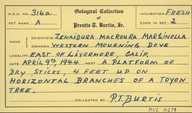 Oological Collection
of
Prentis T. Burtis, Jr.
A.O.U. No. 316a
Incubation FRESH
Set Mark A
Eggs in Set 2
Name ZENAIDURA MACROURA MARGINELLA
WESTERN MOURNING DOVE
EAST OF LIVERMORE, CALIF.
Date APRIL 9TH 1944 Nest A PLATFORM OF
DRY STICKS, 4 FEET UP ON
HORIZONTAL BRANCHES OF A TOYON
TREE.
P.T. BURTIS